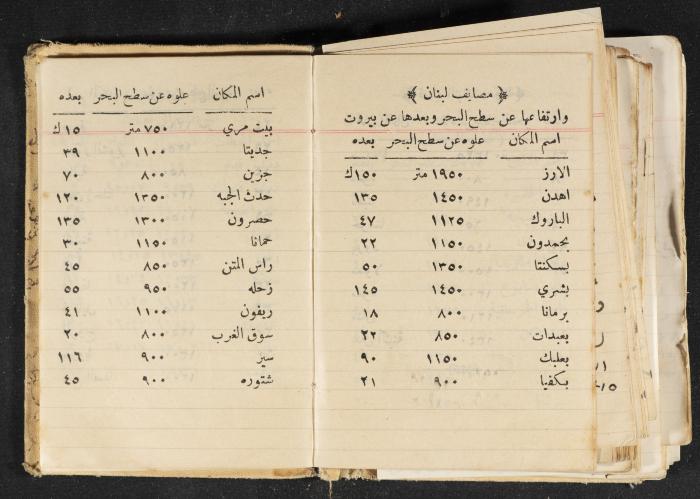 ﴿ مصايف لبنان ﴾
وارتفاعها عن سطح البحر وبعدها عن بيروت
اسم المكان علوه عن سطح البحر بعده
الارز ١٩٥٠ متر ١٥٠ك
اهدن ١٤٥٠ ١٣٥
الباروك ١١٢٥ ٤٧
بحمدون ١١٥٠ ٢٢
بسكنتا ١٣٥٠ ٥٠
بشري ١٤٥٠ ١٤٥
برمانا ٨٠٠ ١٨
بعبدات ٨٥٠ ٢٢
بعلبك ١١٥٠ ٩٠
بكفيا ٩٠٠ ٢١
اسم المكان علوه عن سطح البحر بعده
بيت مري ٧٥٠ متر ١٥ ك
جديتا ١١٠٠ ٣٩
جزين ٨٠٠ ٧٠
حدث الجبه ١٣٥٠ ١٢٠
حصرون ١٣٠٠ ١٣٥
حمانا ١١٥٠ ٣٠
راس المتن ٨٥٠ ٤٥
زحله ٩٥٠ ٥٥
ريفون ١١٠٠ ٤١
سوق الغرب ٨٠٠ ٢٠
سير ٩٠٠ ١١٦
شتوره ٩٠٠ ٤٥